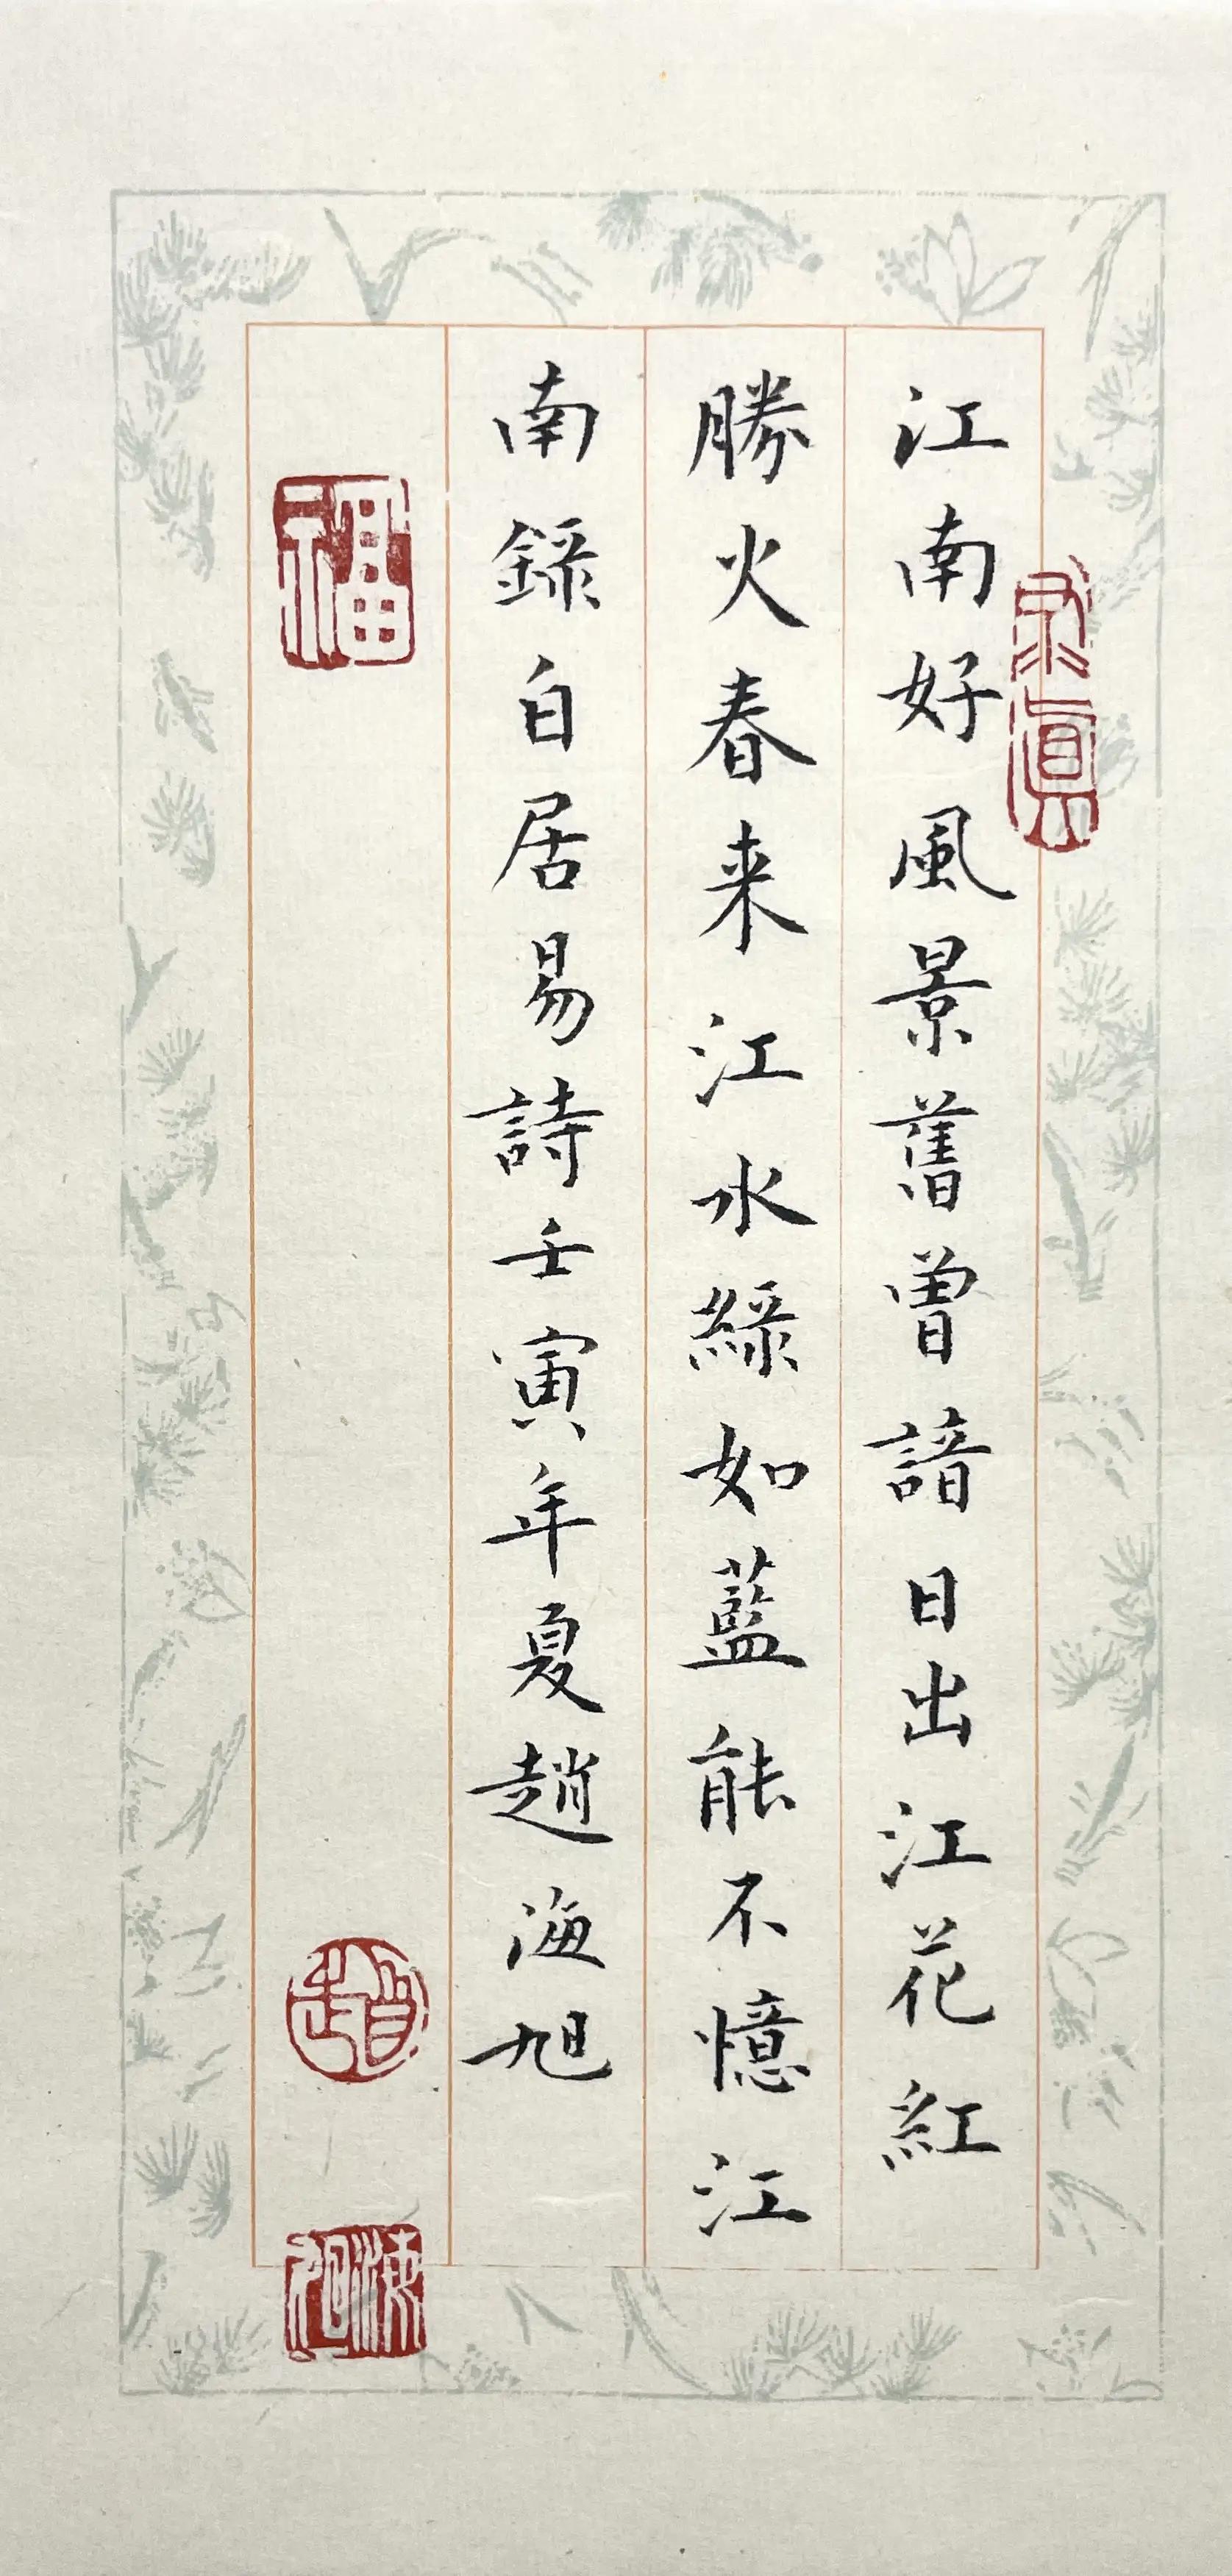 江南好風景舊曾諳日出江花紅
勝火春来江水綠如藍能不憶江
南錄白居易詩壬寅年夏趙海旭
求真
福
趙
海旭